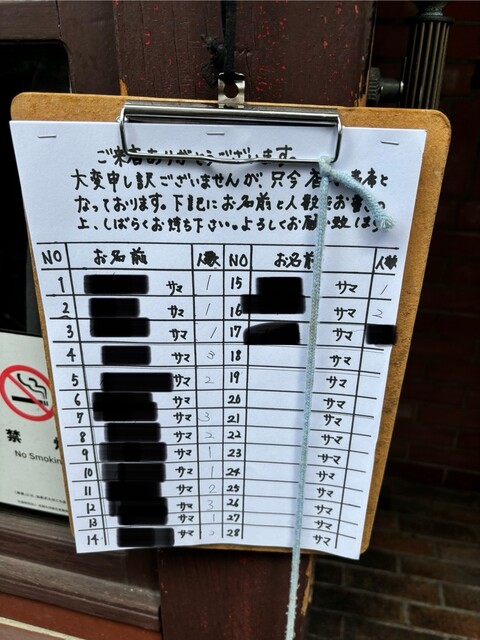 ご来店ありがとうございます。
大変申し訳ございませんが、只今 満席と
なっております。下記にお名前と人数をお書き
上、しばらくお待ち下さい。よろしくお願 致します
NO お名前 人数 NO お名前 人数
1 サマ 1 15 サマ 1
2 サマ 1 16 サマ 2
3 サマ 1 17 サマ
4 サマ 3 18 サマ
5 サマ 2 19 サマ
6 サマ 20 サマ
7 サマ 3 21 サマ
8 サマ 2 22 サマ
9 サマ 1 23 サマ
10 サマ 1 24 サマ
11 サマ 2 25 サマ
12 サマ 3 26 サマ
13 サマ 1 27 サマ
14 サマ 28 サマ
禁
No Smokin